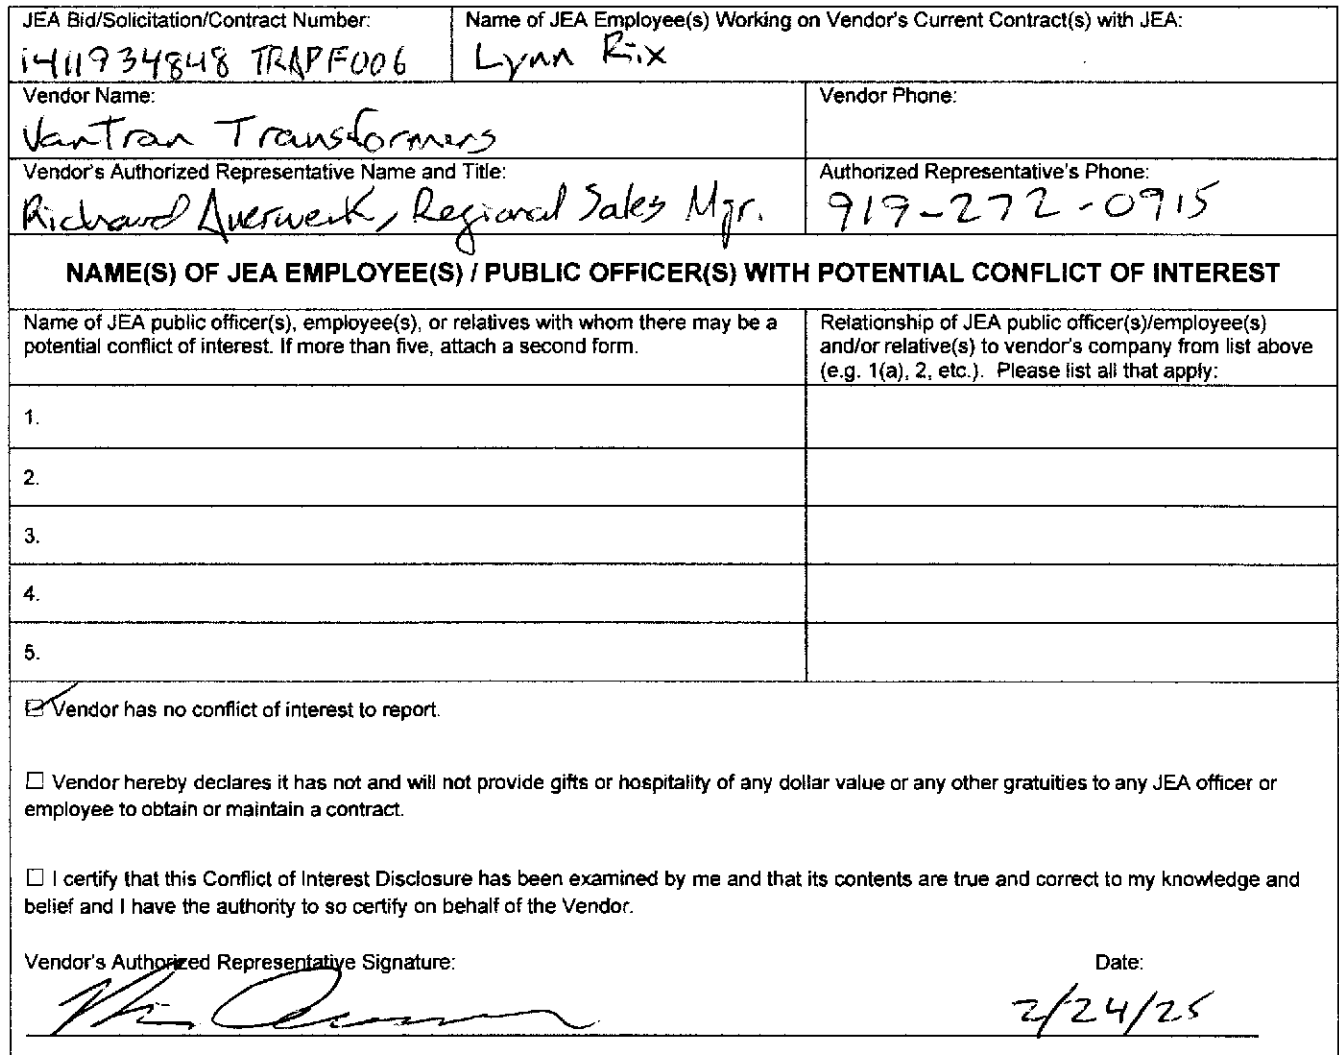 JEA Bid/Solicitation/Contract Number:
i411934848 TRAPF006
Name of JEA Employee(s) Working on Vendor's Current Contract(s) with JEA:
Lynn Rix
Vendor Name:
VanTran Transformers
Vendor Phone:
Vendor's Authorized Representative Name and Title:
Richard Averweik, Regional Sales Mgr.
Authorized Representative's Phone:
919-272-0915
NAME(S) OF JEA EMPLOYEE(S) / PUBLIC OFFICER(S) WITH POTENTIAL CONFLICT OF INTEREST
Name of JEA public officer(s), employee(s), or relatives with whom there may be a
potential conflict of interest. If more than five, attach a second form.
Relationship of JEA public officer(s)/employee(s)
and/or relative(s) to vendor's company from list above
(e.g. 1(a), 2, etc.). Please list all that apply:
1.
2.
3.
4.
5.
Vendor has no conflict of interest to report.
☐ Vendor hereby declares it has not and will not provide gifts or hospitality of any dollar value or any other gratuities to any JEA officer or
employee to obtain or maintain a contract.
☐ I certify that this Conflict of Interest Disclosure has been examined by me and that its contents are true and correct to my knowledge and
belief and I have the authority to so certify on behalf of the Vendor.
Vendor's Authorized Representative Signature:
Date:
2/24/25